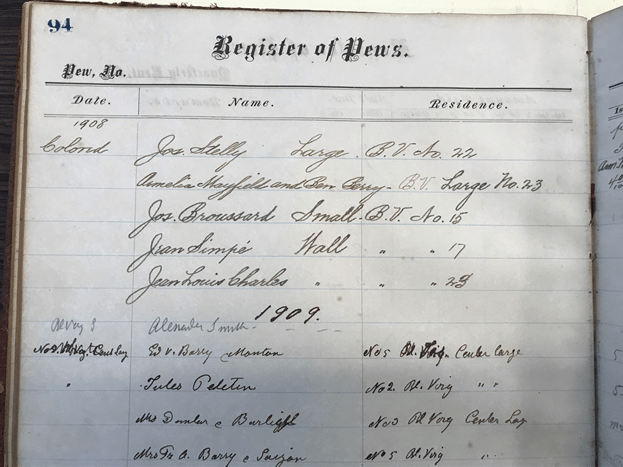 94
Register of Pews.
Pew, No.
Date. Name. Residence.
1908
Colond Jos. Stelly Large. B.V. No. 22
Amelia Mayfield and Ben Perry - B.V. Large No. 23
Jos. Broussard Small. B.V. No. 15
Jean Simpé Wall " " 17
Jean Louis Charles " " " 23
1909.
Alexander Smith
Ed v. Barry Manton No 5 Bl. Virg. Center large
" Jules Peletin No 2. Bl. Virg " "
Mrs Dunbar e Burleigh No 3 Bl Virg Center
Mrs Fr A. Barry e No 5 Bl. Virg "